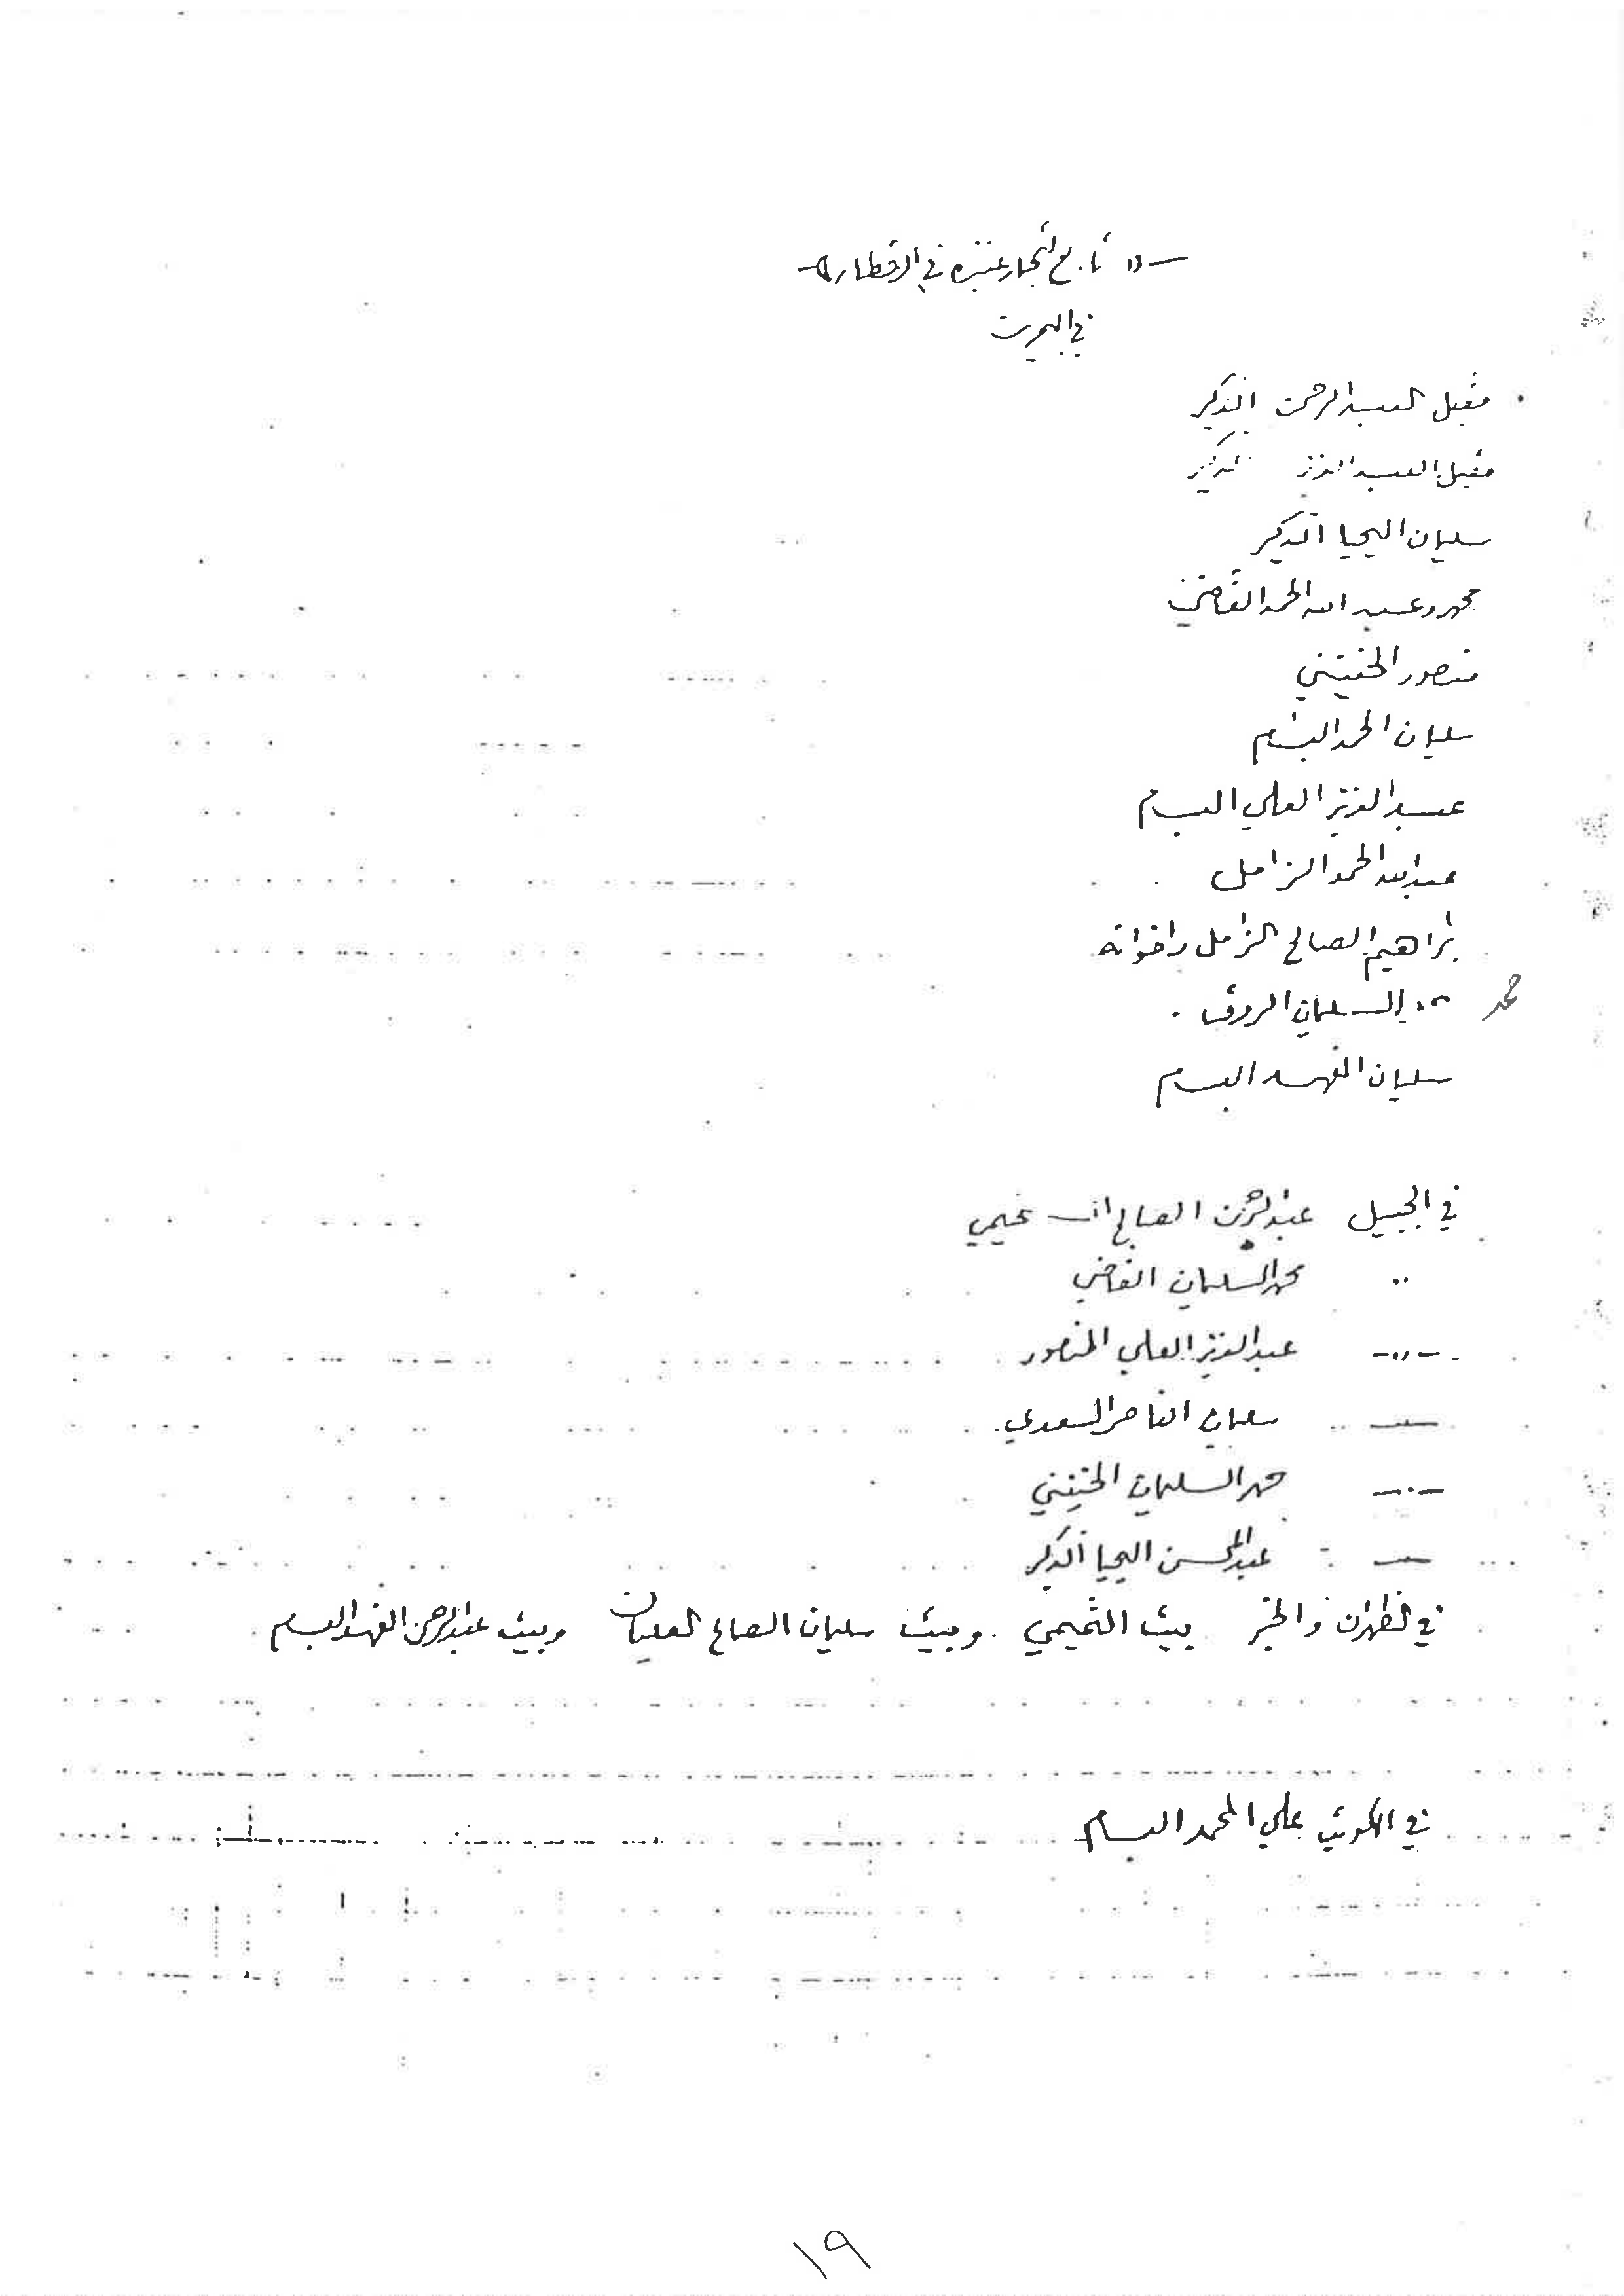 —(( تابع تجار عنيزه في الاقطار ))—
في البحرين
مقبل العبدالرحمن الذكير
مقبل العبدالعزيز الذكير
سليمان اليحيا الذكير
محمد وعبدالله الحمد القاضي
منصور الخنيني
سليمان الحمد البسام
عبدالعزيز العلي البسام
عبدالله الحمد الزامل
ابراهيم الصالح الزامل واخوانه
محمد السليمان الروق
سليمان الفهد البسام
في الجبيل عبدالرحمن الصالح السحيمي
〃 محمد السليمان القاضي
—〃— عبدالعزيز العلي المنصور
— سليمان الناصر السعدي
—〃— حمد السليمان الخنيني
— عبدالمحسن اليحيا الذكير
في الظهران والخبر بيت التميمي . وبيت سليمان الصالح العليان وبيت عبدالرحمن الفهد البسام
في الكويت علي المحمد البسام
١٩